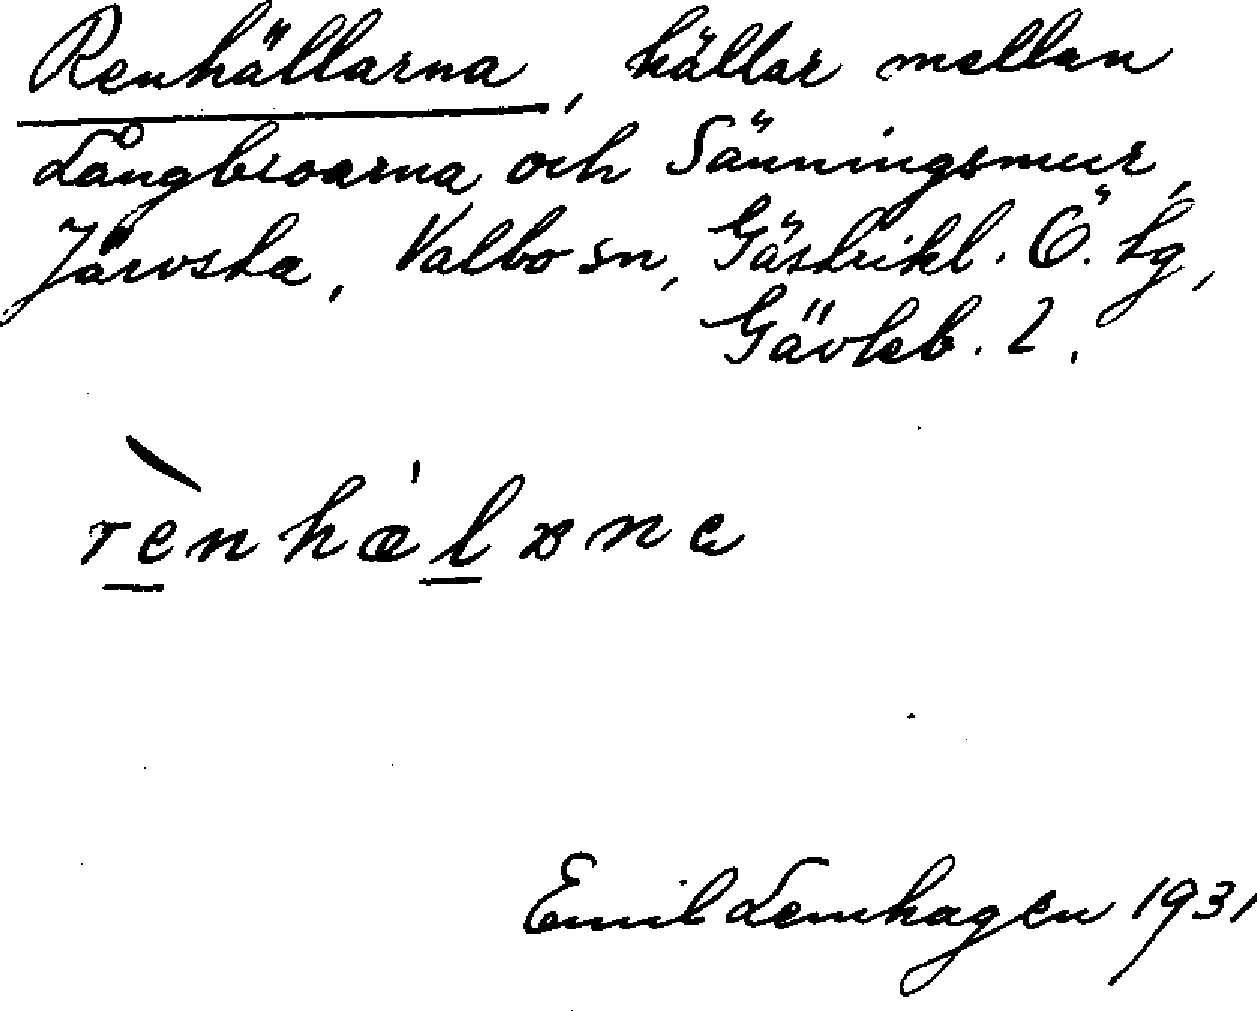 Renhällarna, hällar mellan
Långbroarna och Sänningsmur,
Järvsta, Valbo sn, Gästrikl. Ö. tg,
Gävleb. l.
rènhælᴔnɐ
Emil Lenhagen 1931